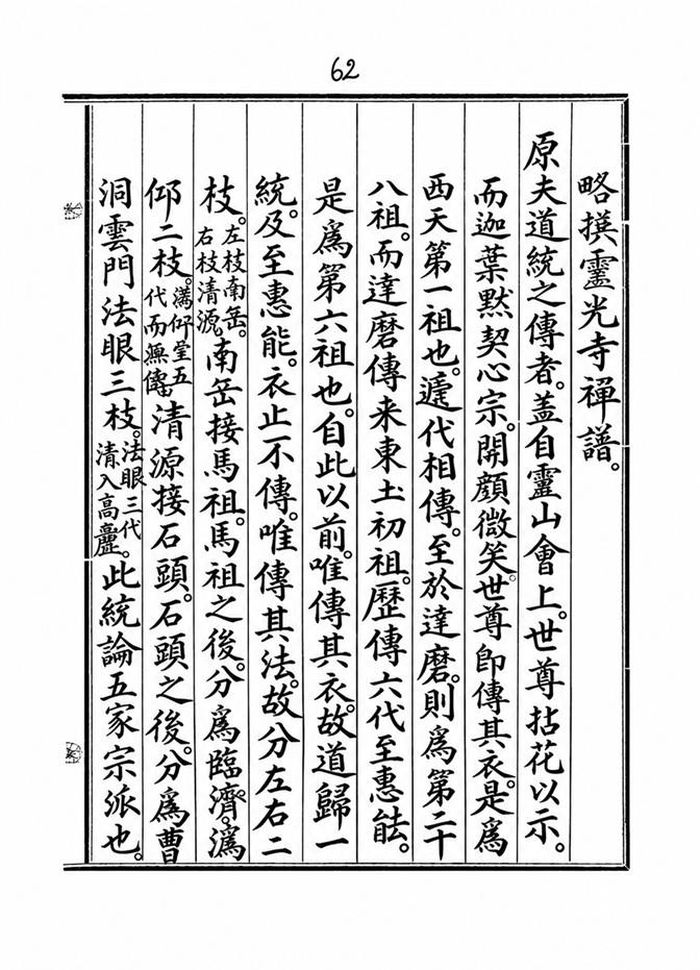 62
略撰靈光寺禪譜。
原夫道統之傳者。蓋自靈山會上。世尊拈花以示。
而迦葉默契心宗。開顏微笑。世尊即傳其衣。是爲
西天第一祖也。遞代相傳。至於達磨。則爲第二十
八祖。而達磨傳来東土初祖。歷傳六代至惠能。
是爲第六祖也。自此以前。唯傳其衣。故道歸一
統。及至惠能。衣止不傳。唯傳其法。故分左右二
枝。左枝南岳。右枝清源。南岳接馬祖。馬祖之後。分爲臨濟。潙
仰二枝。潙仰堂五代而無傳。清源接石頭。石頭之後。分爲曹
洞雲門法眼三枝。法眼三代清入高麗。此統論五家宗派也。